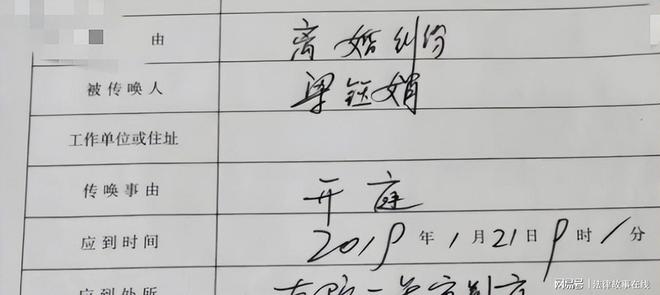 由 离婚纠纷
被传唤人 梁钰娟
工作单位或住址
传唤事由 开庭
应到时间 2019年1月21日9时/分
应到处所
网易号 | 法律故事在线